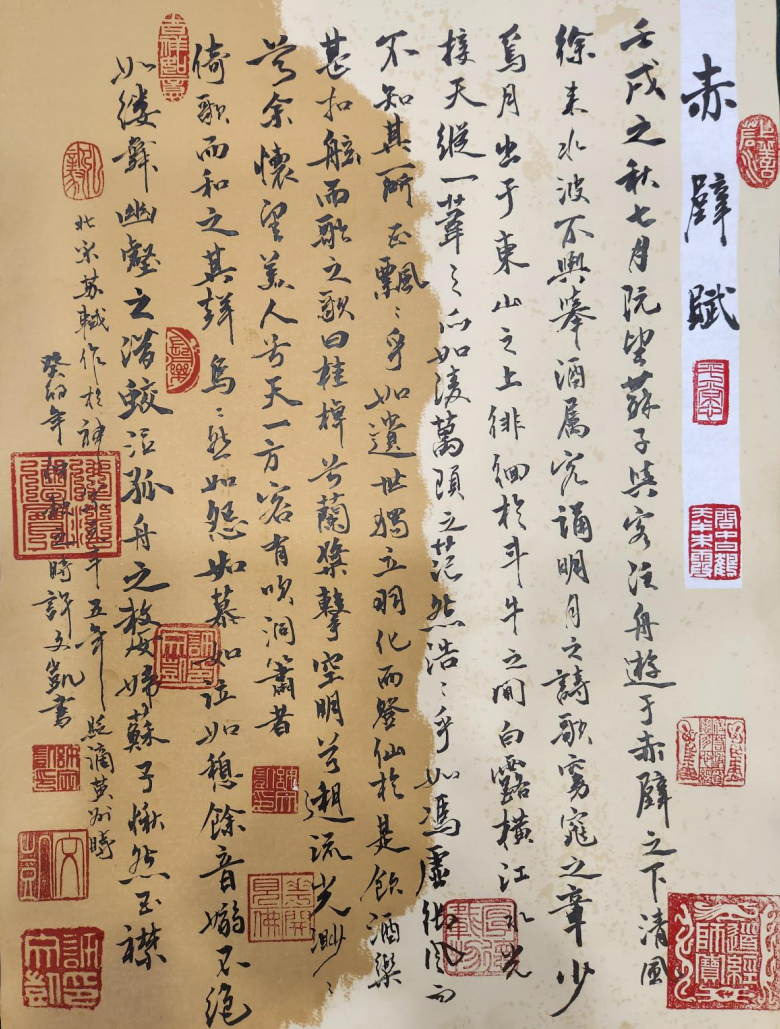 赤壁賦
壬戌之秋七月既望蘇子與客泛舟遊于赤壁之下清風
徐来水波不興舉酒属客誦明月之詩歌窈窕之章少
焉月出于東山之上徘徊於斗牛之間白露横江水光
接天縱一葦之所如淩萬頃之茫然浩〻乎如馮虚御風而
不知其所止飄〻乎如遺世獨立羽化而登仙於是飲酒樂
甚扣舷而歌之歌曰桂棹兮蘭槳擊空明兮遡流光渺〻
兮余懷望美人兮天一方客有吹洞簫者
倚歌而和之其聲嗚〻然如怨如慕如泣如訴餘音嫋〻不绝
如缕舞幽壑之潜蛟泣孤舟之嫠婦蘇子愀然正襟
北宋苏軾作於神 五年 貶謫黄州時
癸卯年 時許文凱書